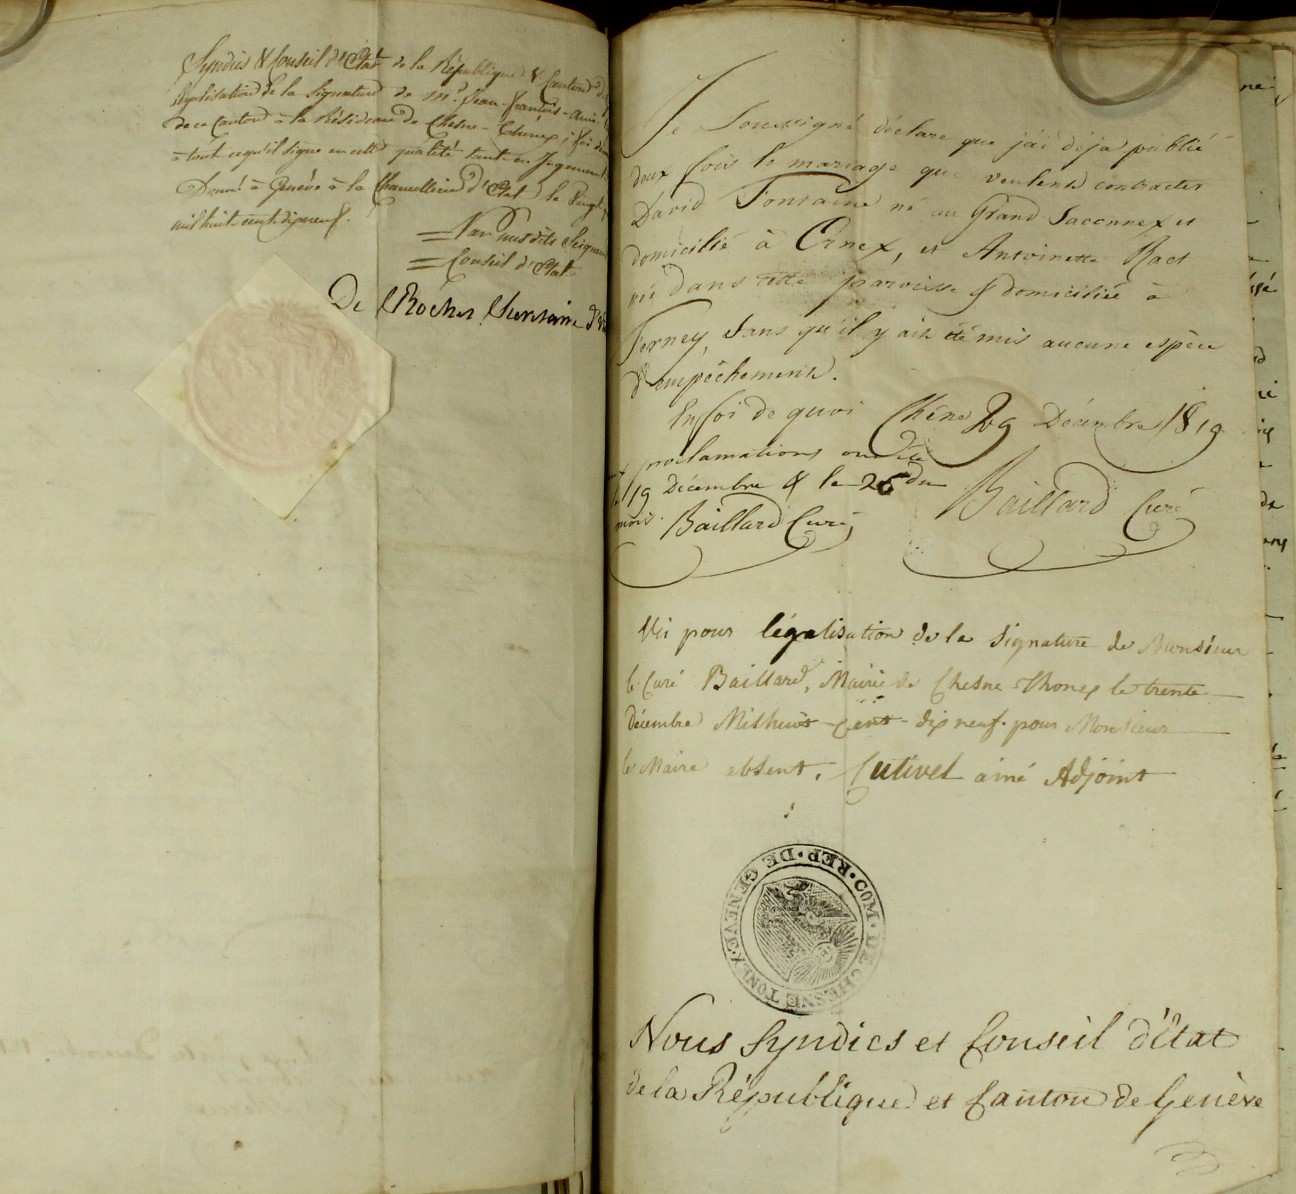 Syndics & Conseil d'Etat de la République & Canton
légalisation de la signature de Mr. Jean-François-
de ce Canton à la Résidence de Chesne-Thonex; foi
à tout ce qu'il signe en cette qualité tant en Jugement
Donné à Genève à la Chancellerie d'Etat le Vingt
mil huit cent dix neuf.
Par mes dits Seigneurs
Conseil d'Etat
De Rochas Secretaire d'
Je Soussigné déclare que j'ai déja publié
deux fois le mariage que veulent contracter
David Fontaine né au Grand Saconnex et
domicilié à Ornex, et Antoinette Ract
née dans cette paroisse & domiciliée à
Ferney, sans qu'il y ait été mis aucune espèce
d'empêchement.
En foi de quoi Chêne 29 Décembre 1819
proclamations ont été
le 19 Décembre & le 26 du
mois. Baillard Curé
Baillard Curé
Vu pour légalisation de la signature de Monsieur
le Curé Baillard, Mairie de Chesne-Thonex le trente
décembre Mil huit-cent-dix neuf. pour Monsieur
le Maire absent. ainé Adjoint
COM · DE CHESNE TONEX · REP · DE GENEVE
Nous Syndics et Conseil d'Etat
de la République et Canton de Genève